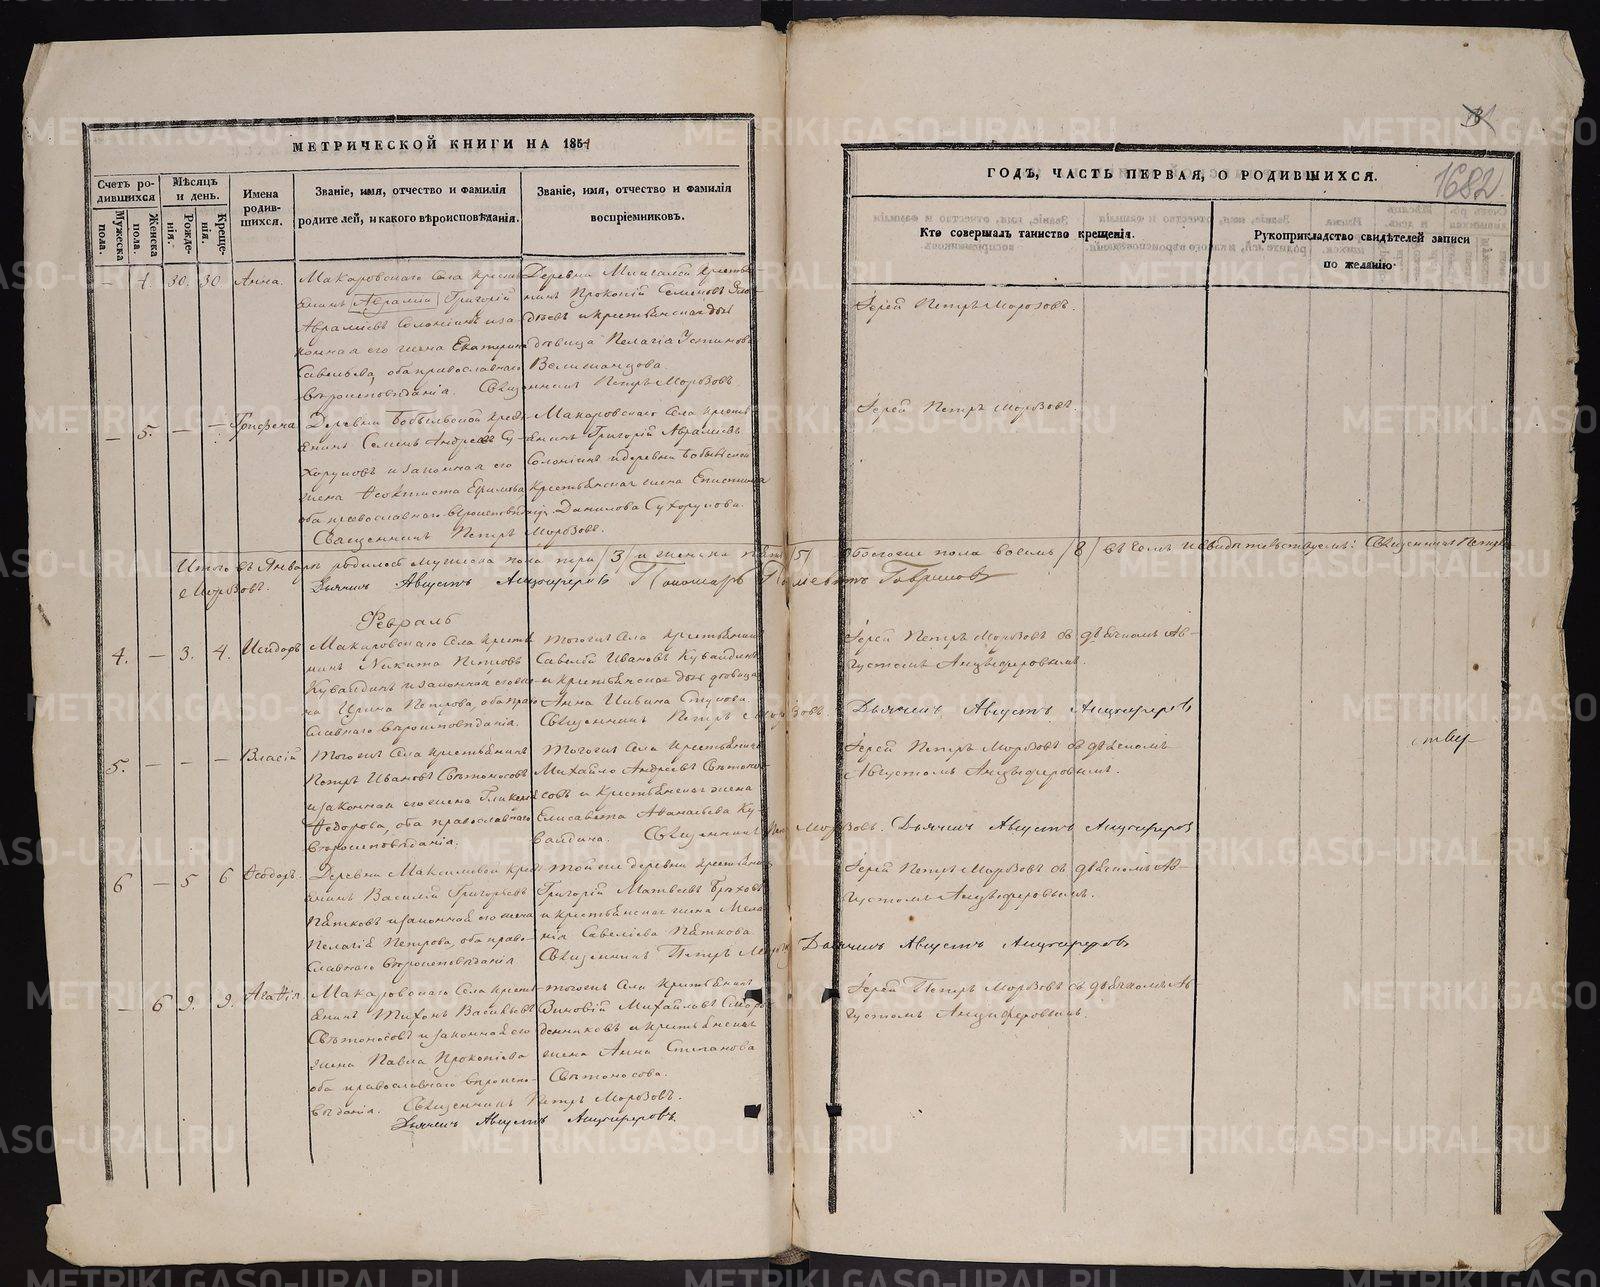 МЕТРИЧЕСКОЙ КНИГИ НА 1851
Счетъ ро-
дившихся
Мужеска
пола.
Женска
пола.
Мѣсяцъ
и день.
Рожде-
нія.
Креще-
нія.
Имена
родив-
шихся.
Званіе, имя, отчество и фамилія
родителей, и какого вѣроисповѣданія.
Званіе, имя, отчество и фамилія
воспріемниковъ.
— 4. 30. 30 Анна.
Макаровскаго Села Кресть
янинъ Авраміи Григорій
Авраміевъ Солонинъ и за
конная его жена Екатерина
Савельева, оба православнаго
вѣроисповѣданія. Священникъ Петръ Морозовъ
Деревни Мингалей кресть
нинъ Прокопій Семеновъ
и крестьянская дочь
дѣвица Пелагія Устинова
— 5. — —
Деревни Бобыльской крест
янинъ Семенъ Андреевъ Су-
хоруковъ и законная его
жена Ѳеоктиста Ефимова
оба православнаго вѣроисповѣданія
Священникъ Петръ Морозовъ.
Макаровскаго Села кресть
янинъ Григорій Авраміевъ
Солонинъ и деревни Бобыльской
крестьянская жена
Данилова Сухорукова.
Итого въ Январѣ родилось мужеска пола три /3/ и женска пять /5/ обоего пола восемь /8/ въ чемъ и свидѣтельствуемъ: Священникъ Петръ
Морозовъ. Дьячекъ Августъ Анцыферовъ Пономарь Гавриловъ
Февраль
4. — 3. 4. Исидоръ
Макаровскаго Села кресть
нинъ Никита Петровъ
Кувалдинъ и законная его же
на Ирина Петрова, оба пра
славнаго вѣроисповѣданія.
Тогожъ Села крестьянинъ
Савелій Ивановъ Кувалдинъ
и крестьянская дочь дѣвица
Анна Ивановна
Священникъ Петръ Морозовъ. Дьячекъ Августъ Анцыферовъ
5. — — — Власій
Тогожъ Села крестьянинъ
Петръ Ивановъ Свѣтоносовъ
и законная его жена Гликерія
Ѳедорова, оба православнаго
вѣроисповѣданія.
Тогожъ Села крестьянинъ
Михайло Андреевъ Свѣтоно
совъ и крестьянская жена
Елисавета Аѳанасьева Ку-
валдина. Священникъ Петръ Морозовъ. Дьячекъ Августъ Анцыферовъ
6 — 5 6 Ѳеодоръ.
Деревни Максимовой крест
янинъ Василій Григорьевъ
Пѣтковъ и законная его жена
Пелагія Петрова, оба право-
славнаго вѣроисповѣданія.
Той же деревни крестьянинъ
Григорій Матвеевъ Бряховъ
и крестьянская жена Мела
нія Савеліева Пѣткова
Священникъ Петръ Морозовъ Дьячекъ Августъ Анцыферовъ
— 6 9. 9. Агаѳія
Макаровскаго Села кресть
янинъ Тихонъ Васильевъ
Свѣтоносовъ и законная его
жена Павла Прокопіева
оба православнаго вѣроиспо-
вѣданія. Священникъ Петръ Морозовъ.
Дьячекъ Августъ Анцыферовъ.
Тогожъ Села крестьянинъ
Зиновій Михайловъ Сморо
динниковъ и крестьянская
жена Анна Степанова
Свѣтоносова.
ГОДЪ, ЧАСТЬ ПЕРВАЯ, О РОДИВШИХСЯ.
1682
Кто совершалъ таинство крещенія.
Рукоприкладство свидѣтелей записи
по желанію.
Іерей Петръ Морозовъ.
Іерей Петръ Морозовъ.
Іерей Петръ Морозовъ съ дьячкомъ Ав-
густомъ Анцыферовымъ.
Іерей Петръ Морозовъ съ дьячкомъ
Августомъ Анцыферовымъ.
Іерей Петръ Морозовъ съ дьячкомъ Ав-
густомъ Анцыферовымъ.
Іерей Петръ Морозовъ съ дьячкомъ Ав
густомъ Анцыферовымъ.
METRIKI.GASO-URAL.RU